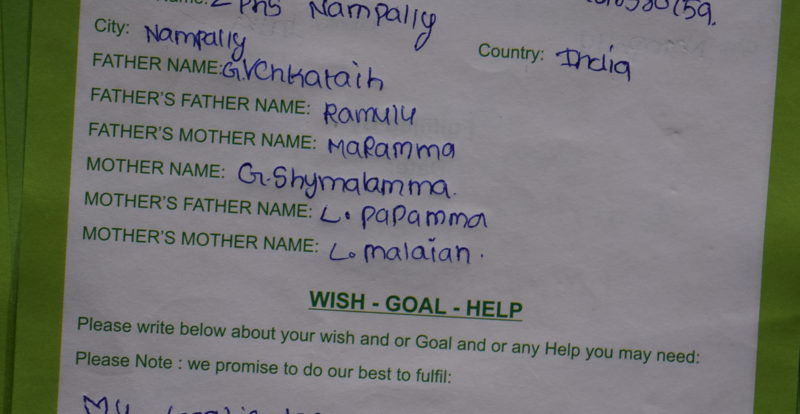 Name: ZPHS Nampally
City: Nampally Country: India
FATHER NAME: G.Venkataih
FATHER'S FATHER NAME: Ramulu
FATHER'S MOTHER NAME: Maramma
MOTHER NAME: G.Shymalamma.
MOTHER'S FATHER NAME: L. papamma
MOTHER'S MOTHER NAME: L. malaian.
WISH - GOAL - HELP
Please write below about your wish and or Goal and or any Help you may need:
Please Note : we promise to do our best to fulfil:
My